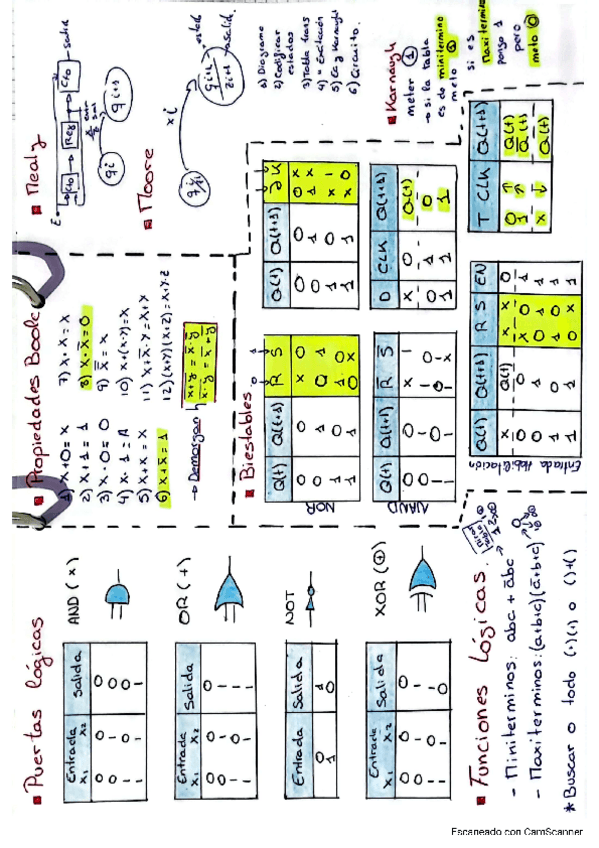 Puertas lógicas
Entrada Salida
x₁ x₂
0 0 0
0 1 0
1 0 0
1 1 1
AND (x)
Entrada Salida
x₁ x₂
0 0 0
0 1 1
1 0 1
1 1 1
OR (+)
Entrada Salida
0 1
1 0
NOT
Entrada Salida
x₁ x₂
0 0 0
0 1 1
1 0 1
1 1 0
XOR (⊕)
Funciones lógicas.
- Miniterminos: abc + ābc
- Maxiterminos: (a+b+c)(ā+b+c)
* Buscar o todo (·)(·) o ()+()
Propiedades Boole
1) x+0=x
2) x+1=1
3) x·0=0
4) x·1=1
5) x+x=x
6) x+x̄=1
7) x·x=x
8) x·x̄=0
9) x̿=x
10) x+(x·y)=x
11) x+x̄·y=x+y
12) (x+y)(x+z)=x+y·z
→ Demorgan
Biestables
Q(t) Q(t+1) R S
0 0 x 0
0 1 0 1
1 0 1 0
1 1 0 x
NOR
Q(t) Q(t+1) R̄ S̄
NAND
Q(t) Q(t+1) R S EN
Entrada Habilitación
Q(t) Q(t+1) J K
0 0 0 x
0 1 1 x
1 0 x 1
1 1 x 0
D CLK Q(t+1)
x 0 Q(t)
0 1 0
1 1 1
T CLK Q(t+1)
0 ↑ Q(t)
1 ↑ Q̄(t)
x ↓ Q(t)
Mealy
E
Cto
Reg
Cto
salida
qi
qi+1
Moore
xi
1) Diagrama
2) Codificar estados
3) Tabla trans
4) " Excitación
5) Ec y Karnaugh
6) Circuito.
Karnaugh
meter 1
→ si la tabla
es de minitermino
meto 1
si es
maxitermino
pongo 1
pero
meto 0
Escaneado con CamScanner